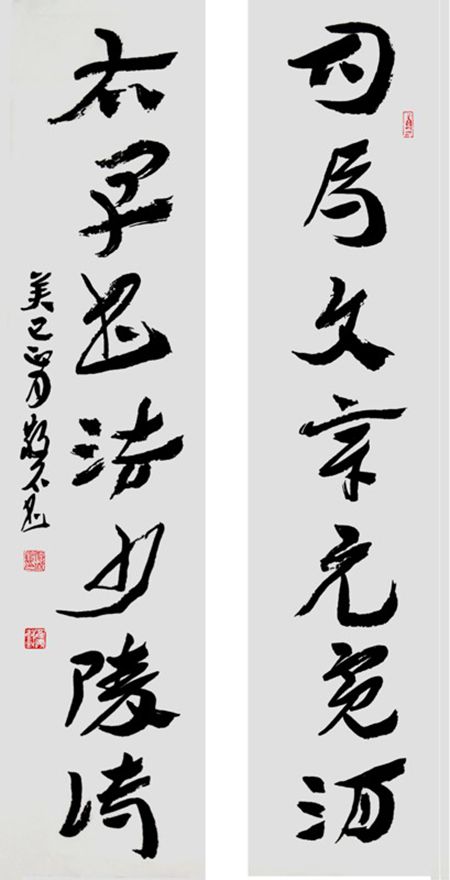 司馬文章元亮酒
右軍書法少陵詩
癸巳